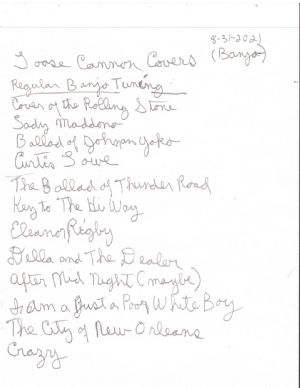 8-31-2021
Loose Cannon Covers (Banjo)
Regular Banjo Tuning
Cover of the Rolling Stone
Lady Maddona
Ballad of John an Yoko
Curtis Lowe
The Ballad of Thunder Road
Key to The Hi Way
Eleanor Rigby
Della and The Dealer
After Mid Night (maybe)
I am a Just a Poor White Boy
The City of New Orleans
Crazy